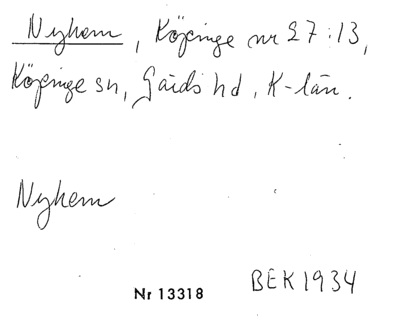 Nyhem, Köpinge nr 27:13,
Köpinge sn, Gärds hd, K-län.
Nyhem
Nr 13318 BEK 1934